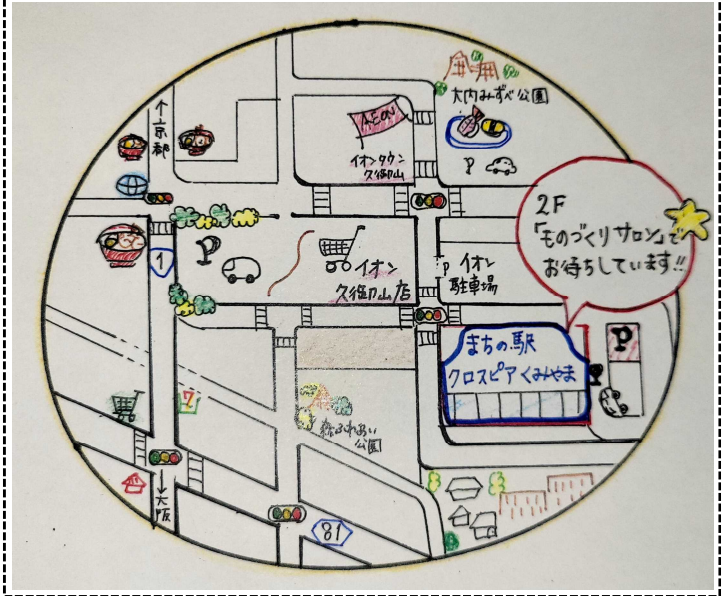 大内みずべ公園
↑京都
AEON
イオンタウン
久御山
P
2F
「ものづくりサロン」で
お待ちしています!!
1
P
イオン
久御山店
P
イオン
駐車場
まちの駅
クロスピアくみやま
P
P
7
森ふれあい
公園
↓大阪
81